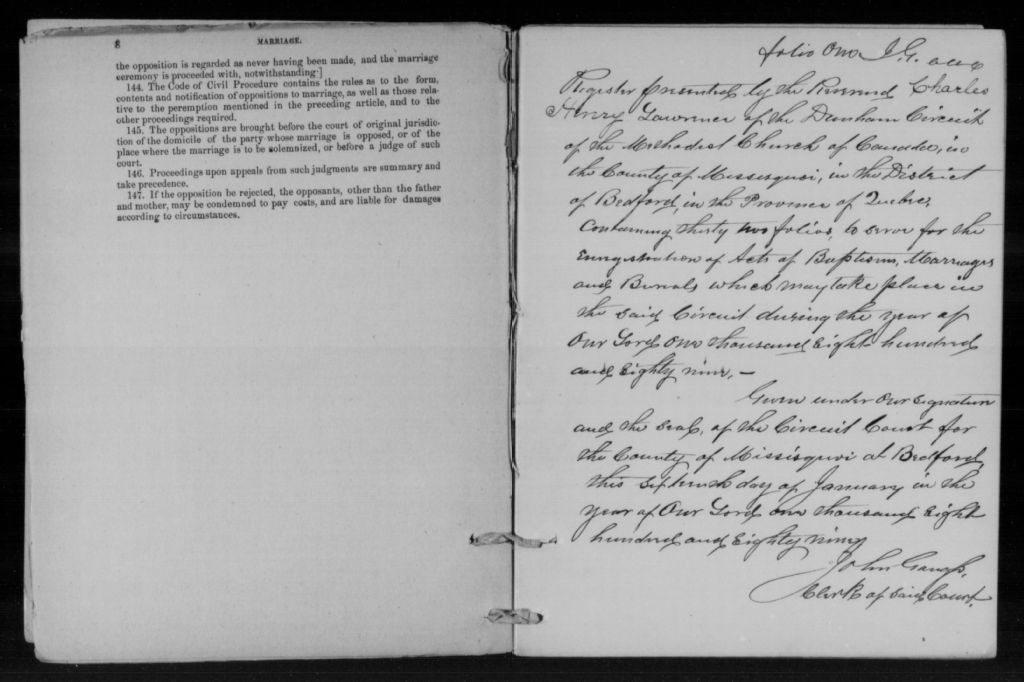 8
MARRIAGE.
the opposition is regarded as never having been made, and the marriage
ceremony is proceeded with, notwithstanding.]
144. The Code of Civil Procedure contains the rules as to the form,
contents and notification of oppositions to marriage, as well as those rela-
tive to the peremption mentioned in the preceding article, and to the
other proceedings required.
145. The oppositions are brought before the court of original jurisdic-
tion of the domicile of the party whose marriage is opposed, or of the
place where the marriage is to be solemnized, or before a judge of such
court.
146. Proceedings upon appeals from such judgments are summary and
take precedence.
147. If the opposition be rejected, the opposants, other than the father
and mother, may be condemned to pay costs, and are liable for damages
according to circumstances.
folio One J.G.
Register presented by the Reverend Charles
Henry Lawrence of the Dunham Circuit
of the Methodist Church of Canada, in
the County of Missisquoi, in the District
of Bedford, in the Province of Quebec,
Containing thirty two folios, to serve for the
Enregistration of Acts of Baptisms, Marriages
and Burials which may take place in
the said Circuit during the year of
Our Lord One thousand Eight hundred
and Eighty nine. —
Given under Our signature
and the seal, of the Circuit Court for
the County of Missisquoi at Bedford,
this day of January in the
year of Our Lord one thousand Eight
hundred and Eighty nine
John
Clerk of said Court.